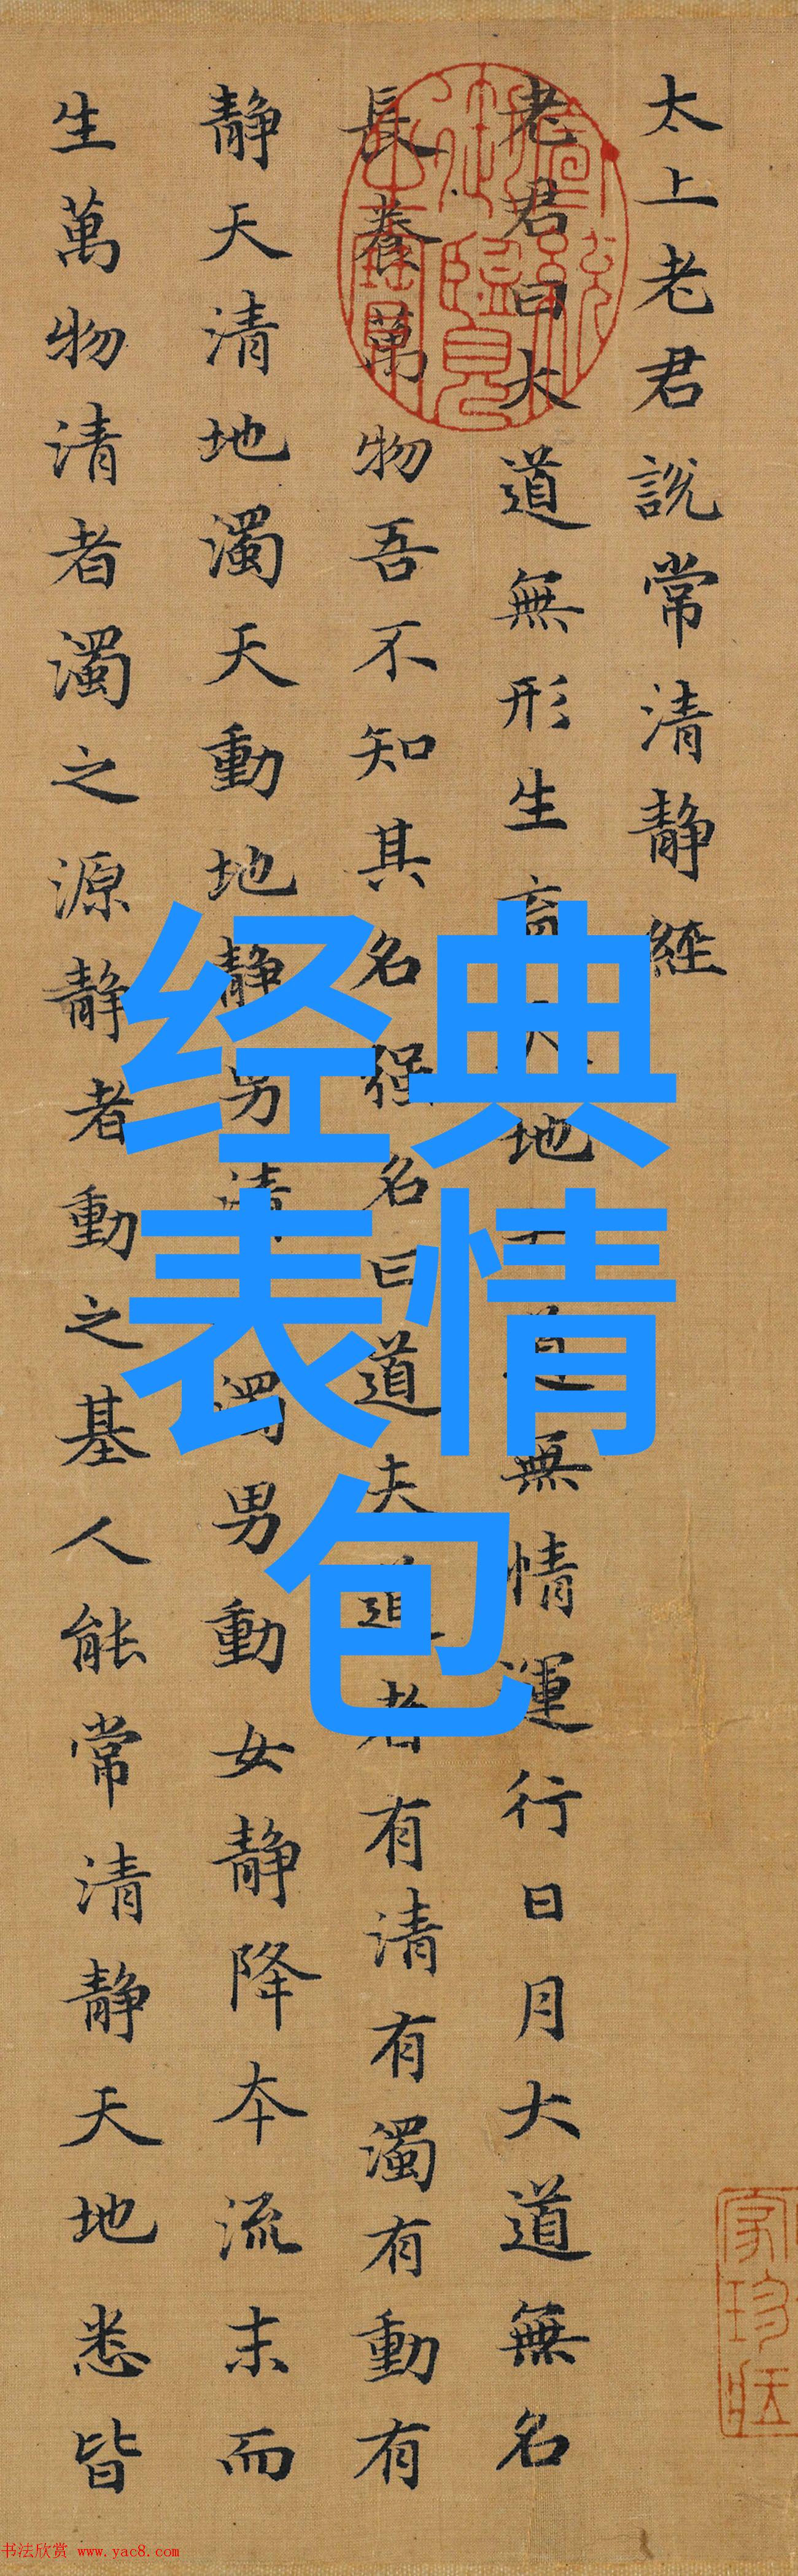 太上老君說常清静經
老君曰大道無形生育天地道無情運行日月大道無名
長養萬物吾不知其名强名曰道夫道者有清有濁有動有
静天清地濁天動地静男清濁男動女静降本流末而
生萬物清者濁之源静者動之基人能常清静天地悉皆
宣統御覽之寶
经典
表情
包
书法欣赏 www.yac8.com